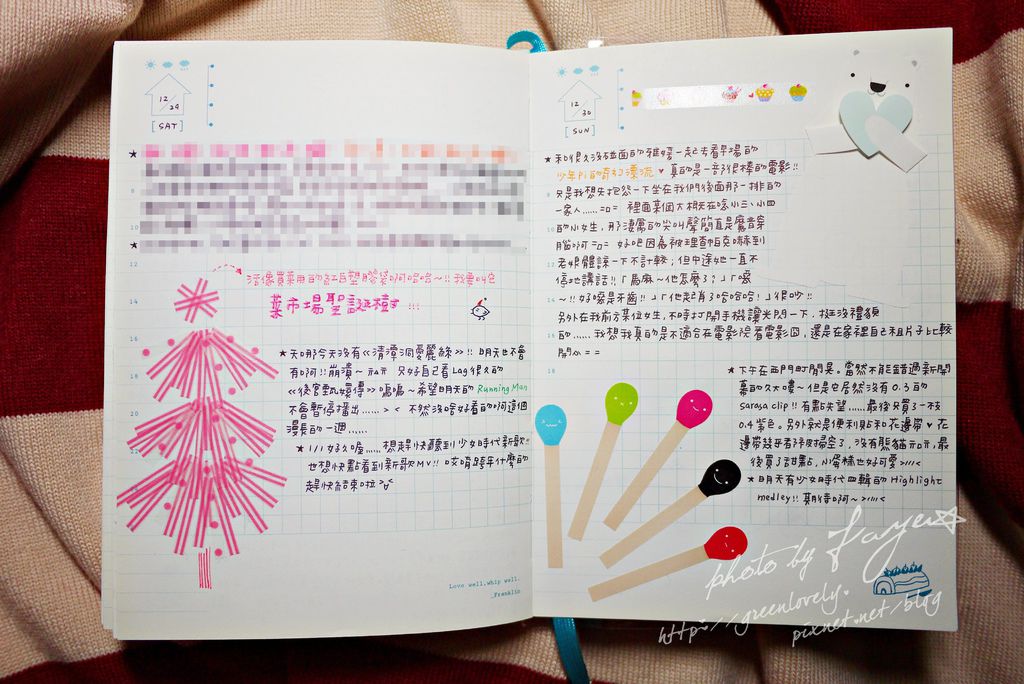 12/29
[SAT]
活像賣菜用的紅白塑膠袋啊哈哈~!! 我要叫它
菜市場聖誕樹 !!!
★天啊今天沒有《清潭洞愛麗絲》!! 明天也不會
有啊!! 崩潰~ 只好自己看Lag很久的
《後宮甄嬛傳》嗚嗚~希望明天的 Running Man
不會暫停播出……> < 不然沒啥好看的啊這個
漫長的一週……
★1/1 好久喔……想趕快聽到少女時代新歌!!
也想快點看到新歌MV!! 哎唷跨年什麼的
趕快結束啦
Love well, whip well.
_Franklin
12/30
[SUN]
★和很久沒碰面的雅婷一起去看早場的
少年Pi的奇幻漂流 ♥ 真的是一部很棒的電影!!
只是我想先抱怨一下坐在我們後面那一排的
一家人…… 裡面某個大概在唸小三、小四
的小女生,那淒厲的尖叫聲簡直是魔音穿
腦啊 =□= 好吧因為被理查帕克嚇到
老娘體諒一下不計較;但中途她一直不
停地講話!!「馬麻~他怎麼了?」「噁
~!! 好噁是牙齒!!」「他起肖了哈哈哈!」很吵!!
另外在我前方某位女生,不時打開手機讓光閃一下,挺沒禮貌
的……我想我真的是不適合在電影院看電影囧,還是在家裡自己租片子比較
開心 = =
★下午在西門町閒晃。當然不能錯過新開
幕的久大嘍~但是它居然沒有0.3的
Sarasa clip!! 有點失望……最後只買了一支
0.4紫色。另外就是便利貼和花邊帶 ♥ 花
邊帶幾乎都被掃空了,沒有熊貓,最
後買了甜點,小蛋糕也好可愛>///<
★明天有少女時代四輯的 Highlight
medley!! 期待啊~>///<
photo by Faye☆
http://greenlovely.
pixnet.net/blog